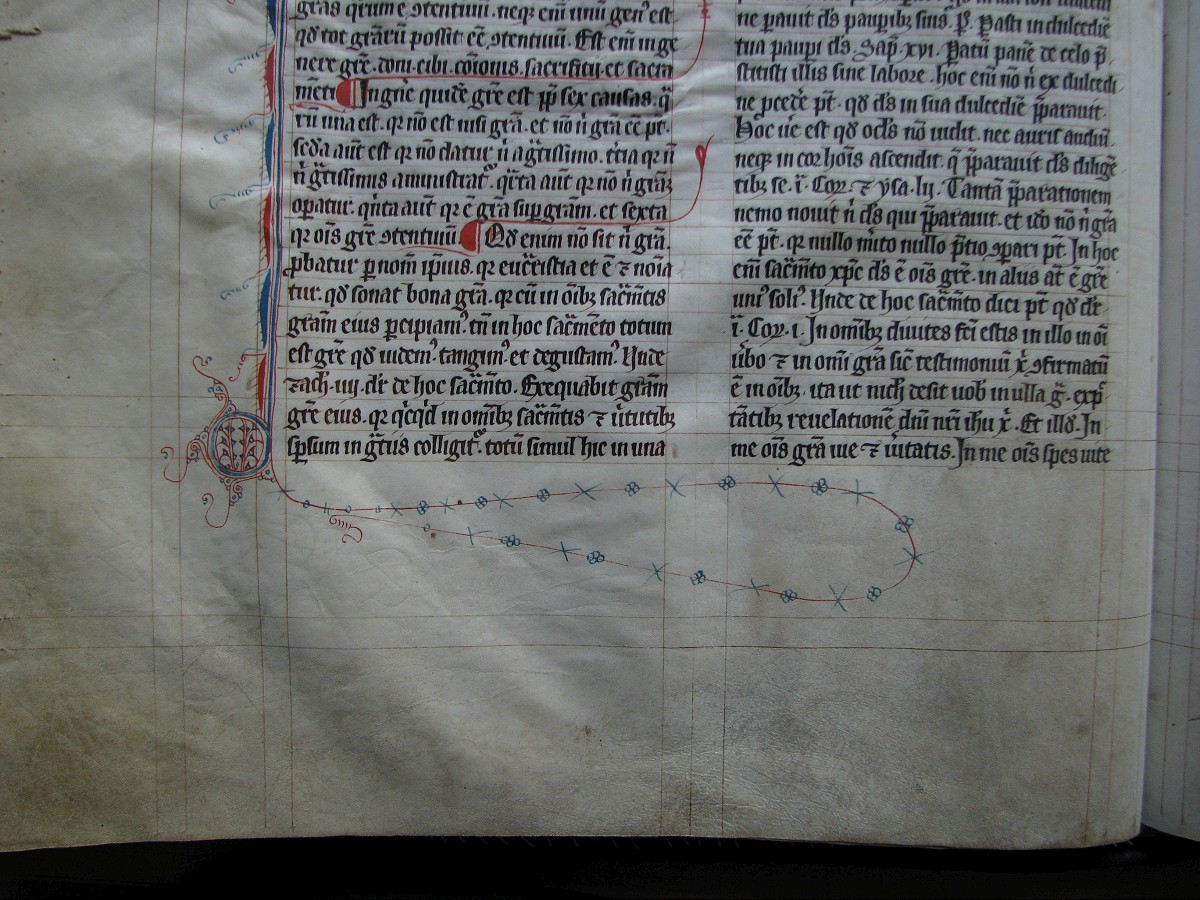 gr̄as qr̄um ē ꝯtentiuū. neqꝫ em̄ unū genꝰ est
qd̄ tot gr̄arū possit eē ꝯtentiuū. Est em̄ in ge
nere gr̄e. doni. cibi. cōionis. sacrificij. et sacra
mēti. In gn̄e quidē gr̄e est ꝓp̄ sex causas. q̄
rū una est. qr no est nisi gr̄a. et nō n̄ gr̄a eē pt.
scd̄a aut̄ est qr nō datur n̄ a gr̄tissimo. t̄tia qr n̄
n̄ gr̄tissimus amīnistrat̉. qr̄ta aut̄ qr nō n̄ gr̄am
opatur. qn̄ta aut̄ qr ē gr̄a sup gr̄am. et sexta
qr oīs gr̄e ꝯtentiuū. Qd̄ enim nō sit n̄ gr̄a.
ꝓbatur ꝑ nom̄ ip̄ius. qr euc̄ristia et ē ⁊ noīa
tur. qd̄ sonat bona gr̄a. qr cū in oīb; sacr̄mtis
gr̄am eius ꝑcipiamꝰ. tn̄ in hoc sacr̄mēto totum
est gr̄e qd̄ uidemꝰ. tangimꝰ. et degustamꝰ. Unde
zach. iiij. dr̄ de hoc sacr̄mto. Exequabit gr̄am
gr̄e eius. qr qͥcqͥd in omīb; sacr̄mtis ⁊ ūtutib;
sꝑsum in gr̄tiis colligit̉. totū simul hic in una
ne pauit ds̄ paupib; suis. P̄. Pasti in dulcedīe
tua paupi ds̄. Sap̄. xvi. Patū panē de celo p̄
stitisti illis sine labore. hoc em̄ nō n̄ ex dulcedi
ne ꝓcedē pt̄. qd̄ ds̄ in sua dulcedīe p̄parauit.
Hoc ūe est qd̄ oc̄ls nō uidit. nec auris audiū.
neqꝫ in cor hoīs ascendit. q̄ p̄parauit ds̄ diligē
tib; se. ī. Coꝝ. ⁊ ysa. lij. Tantā p̄parationem
nemo nouit n̄ ds̄ qui p̄parauit. et iō nō n̄ gr̄a
eē pt̄. qr nullo mīto nullo p̄tio ꝯpari pt̄. In hoc
em̄ sacr̄mto xp̄c ds̄ ē oīs gr̄e. in aliis at̄ ē gr̄e
uniꝰ soliꝰ. Unde de hoc sacr̄mto dici pt̄ qd̄ dr̄
ī. Coꝝ. i. In omīb; diuites fc̄i estis in illo in oī
ūbo ⁊ in omi gr̄a sic̄ testimoniū x̄ ꝯfirmatū
ē in oīb;. ita ut nich̄ desit uob̄ in ulla gr̄. exp̄
tātib; reuelationē dn̄i nr̄i ihu x̄. Et illd̄. In
me oīs gr̄a uie ⁊ ūitatis. In me oīs spes uite